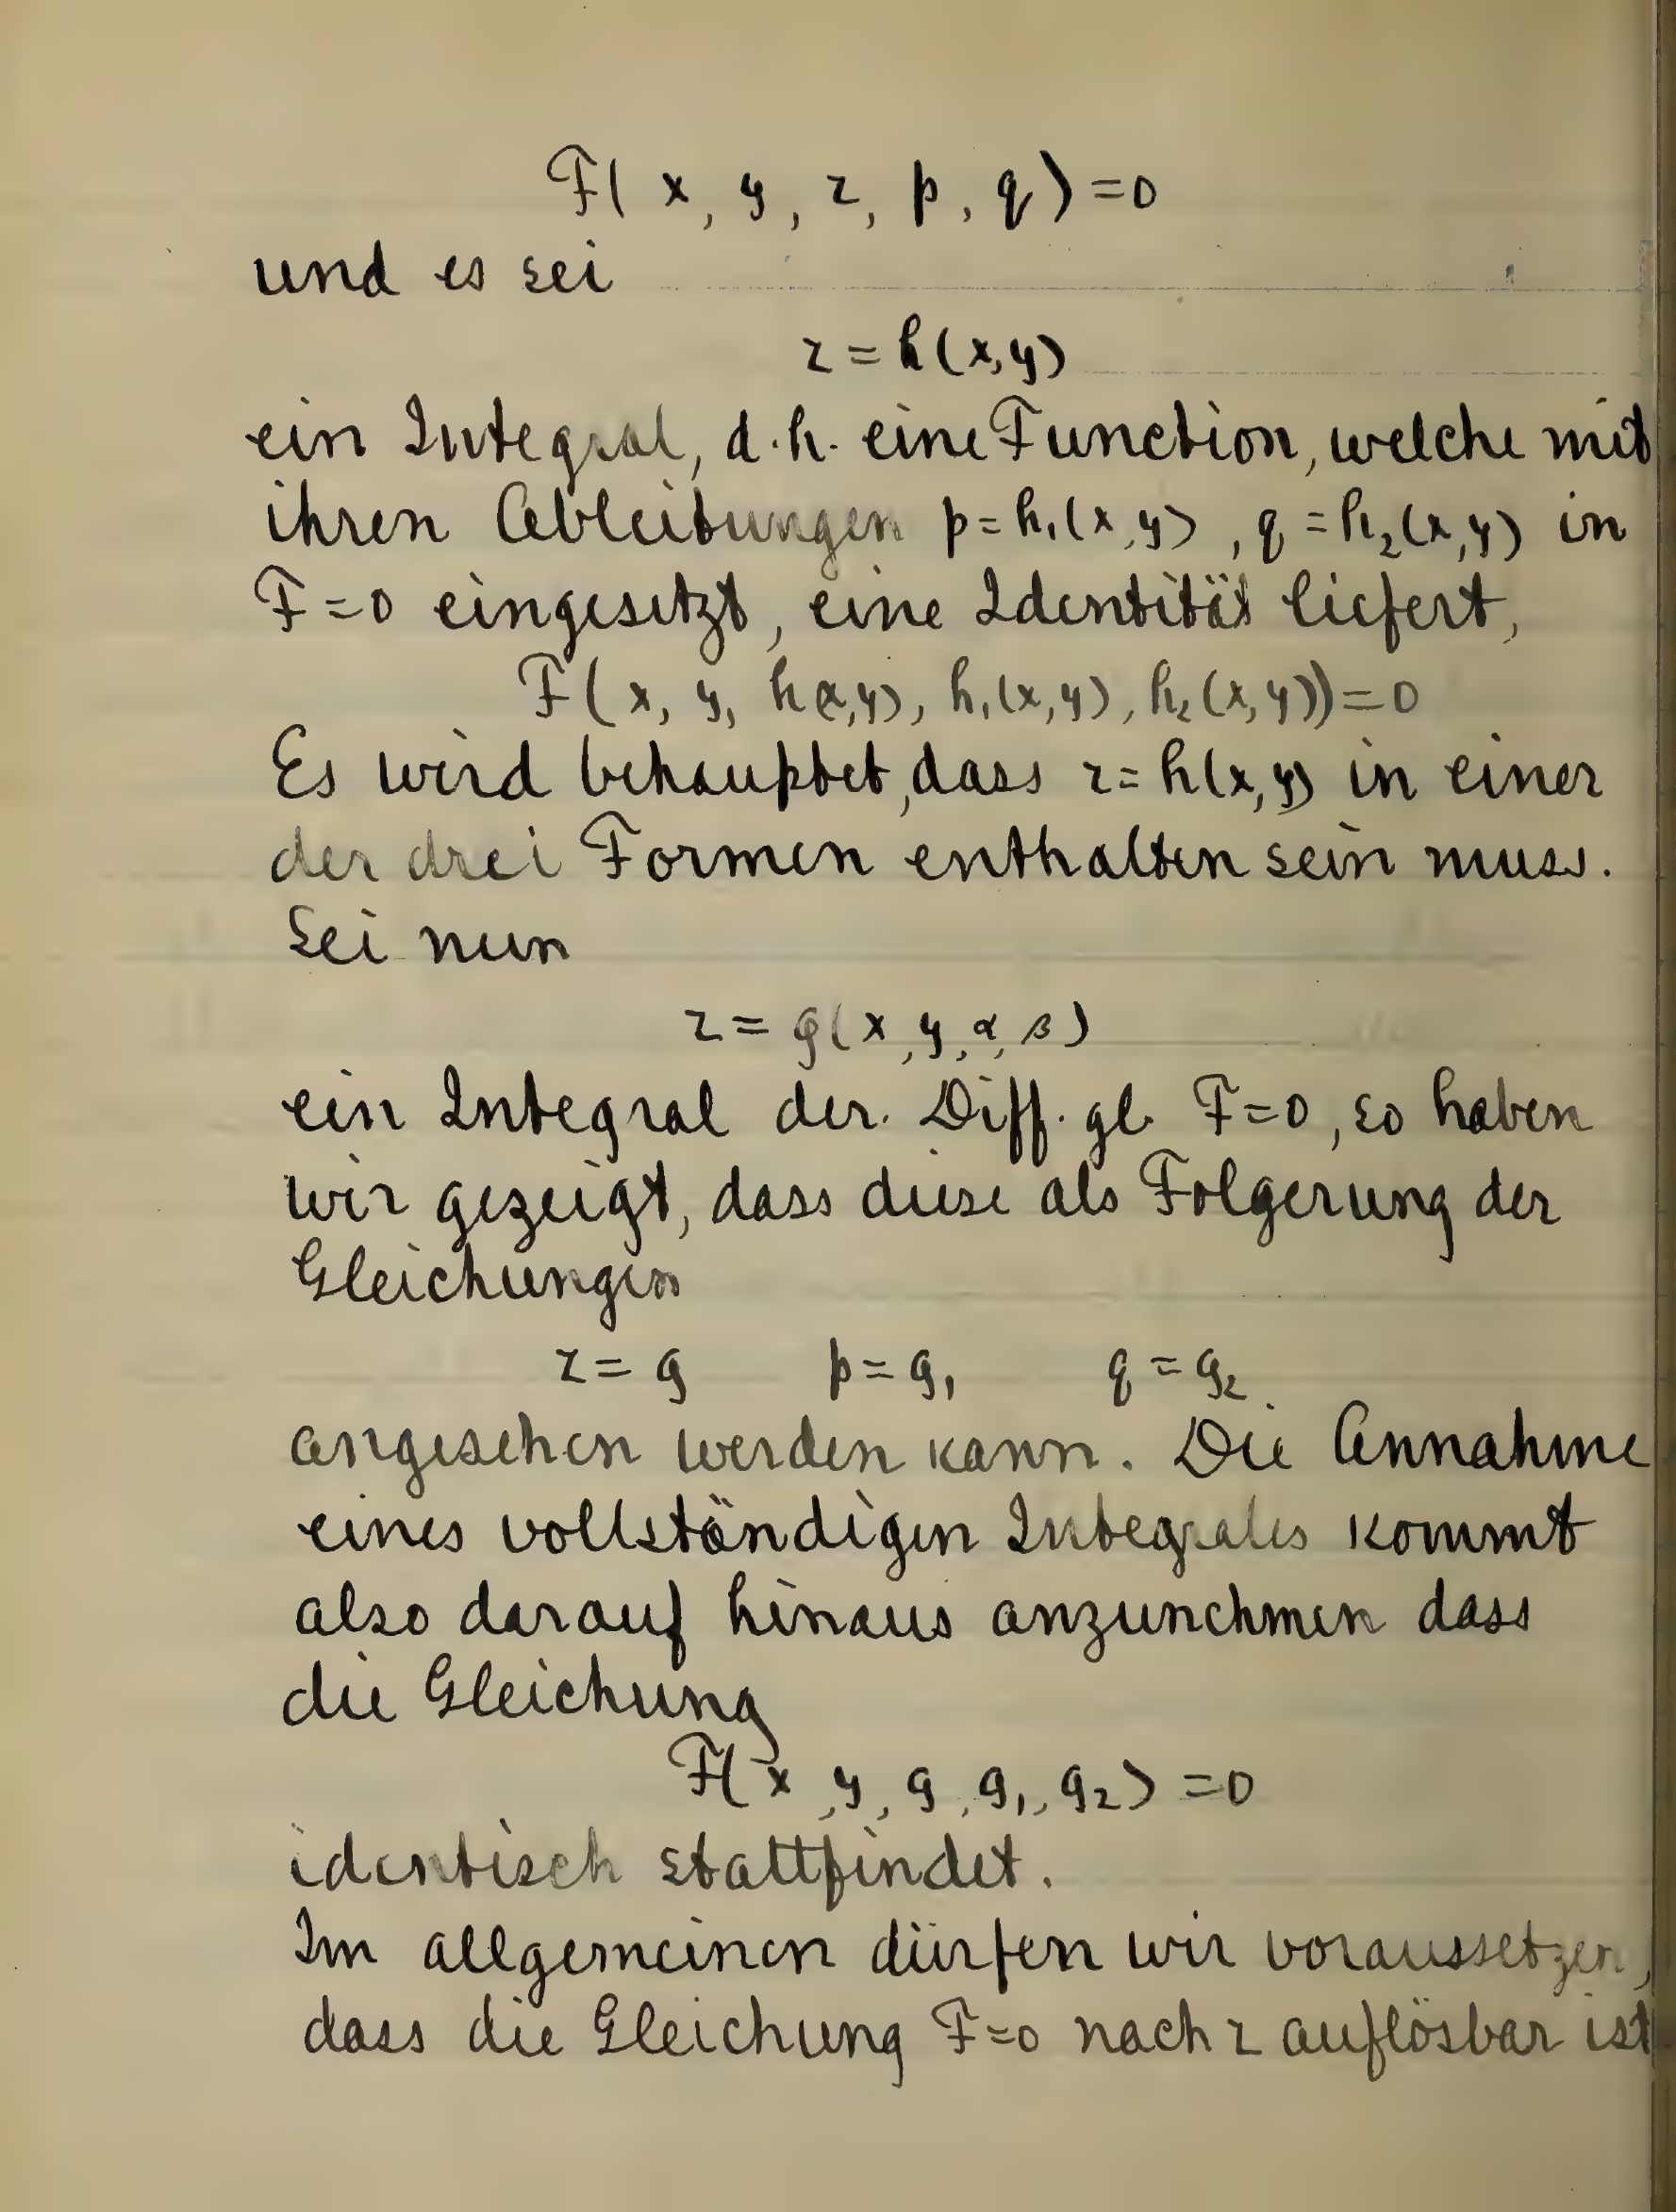 F( x, y, z, p, q) = 0
und es sei
z = h(x,y)
ein Integral, d.h. eine Function, welche mit
ihren Ableitungen p = h₁(x,y), q = h₂(x,y) in
F = 0 eingesetzt, eine Identität liefert,
F(x, y, h(x,y), h₁(x,y), h₂(x,y)) = 0
Es wird behauptet, dass z = h(x,y) in einer
der drei Formen enthalten sein muss.
Sei nun
z = g(x, y, α, β)
ein Integral der. Diff. gl. F=0, so haben
wir gezeigt, dass diese als Folgerung der
Gleichungen
z = g p = g₁ q = g₂
angesehen werden kann. Die Annahme
eines vollständigen Integrales kommt
also darauf hinaus anzunehmen dass
die Gleichung
F(x, y, g, g₁, g₂) = 0
identisch stattfindet.
Im allgemeinen dürfen wir voraussetzen,
dass die Gleichung F=0 nach z auflösbar ist